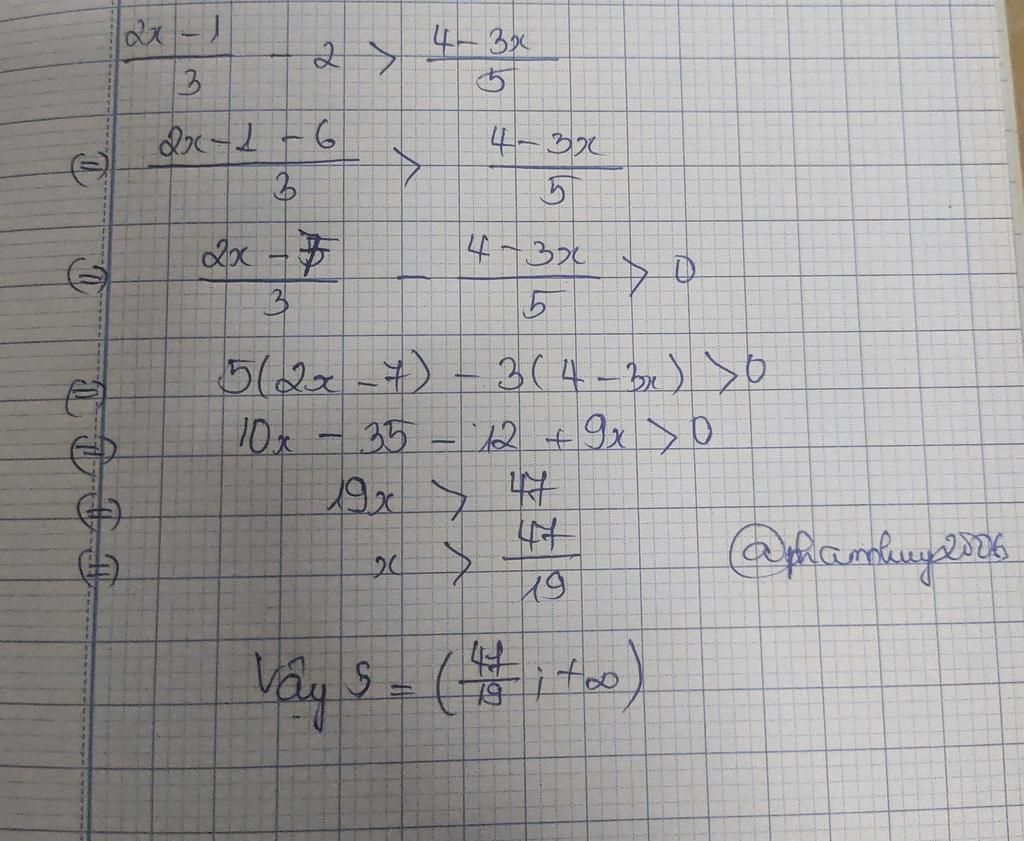 (2x - 1)/3 - 2 > (4 - 3x)/5
(=) (2x - 1 - 6)/3 > (4 - 3x)/5
(=) (2x - 7)/3 - (4 - 3x)/5 > 0
(=) 5(2x - 7) - 3(4 - 3x) > 0
(=) 10x - 35 - 12 + 9x > 0
(=) 19x > 47
(=) x > 47/19
@phamhuy2006
Vậy S = (47/19 ; +∞)